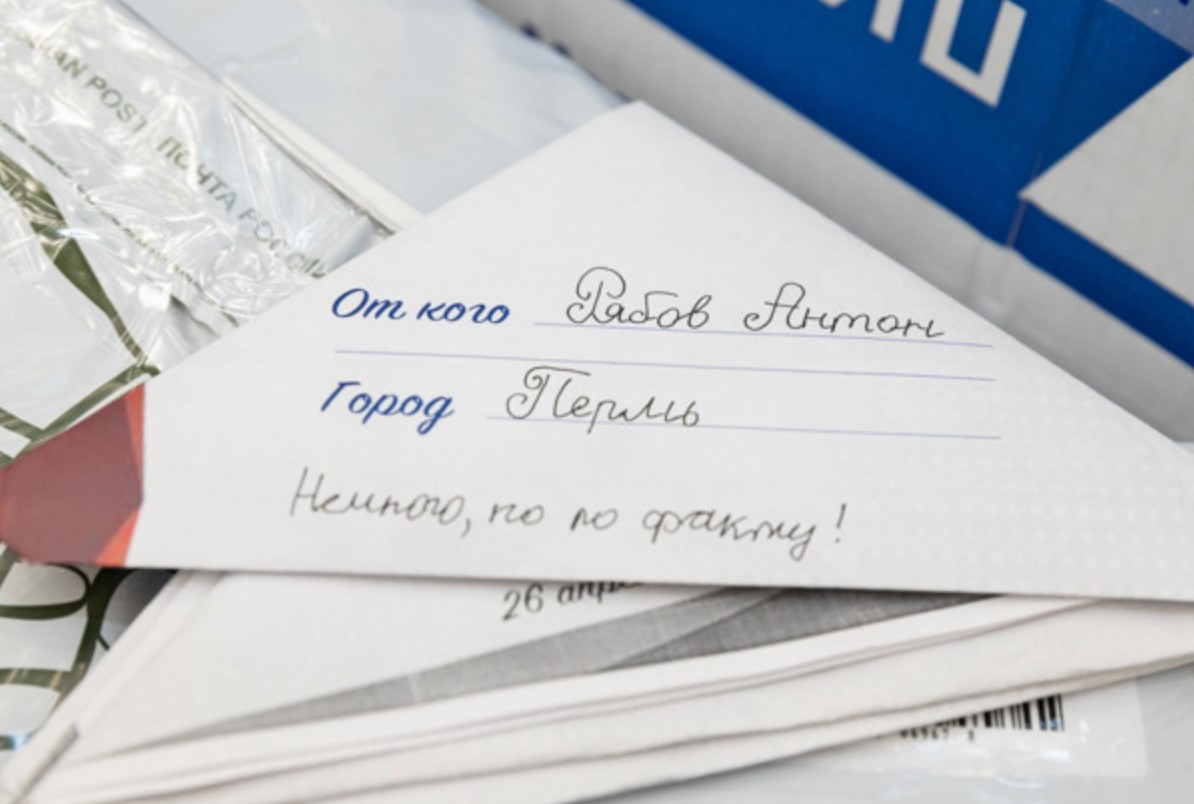 RUSSIAN POST ПОЧТА РОССИИ
От кого Рябов Антон
Город Пермь
Немного, но по факту!
26